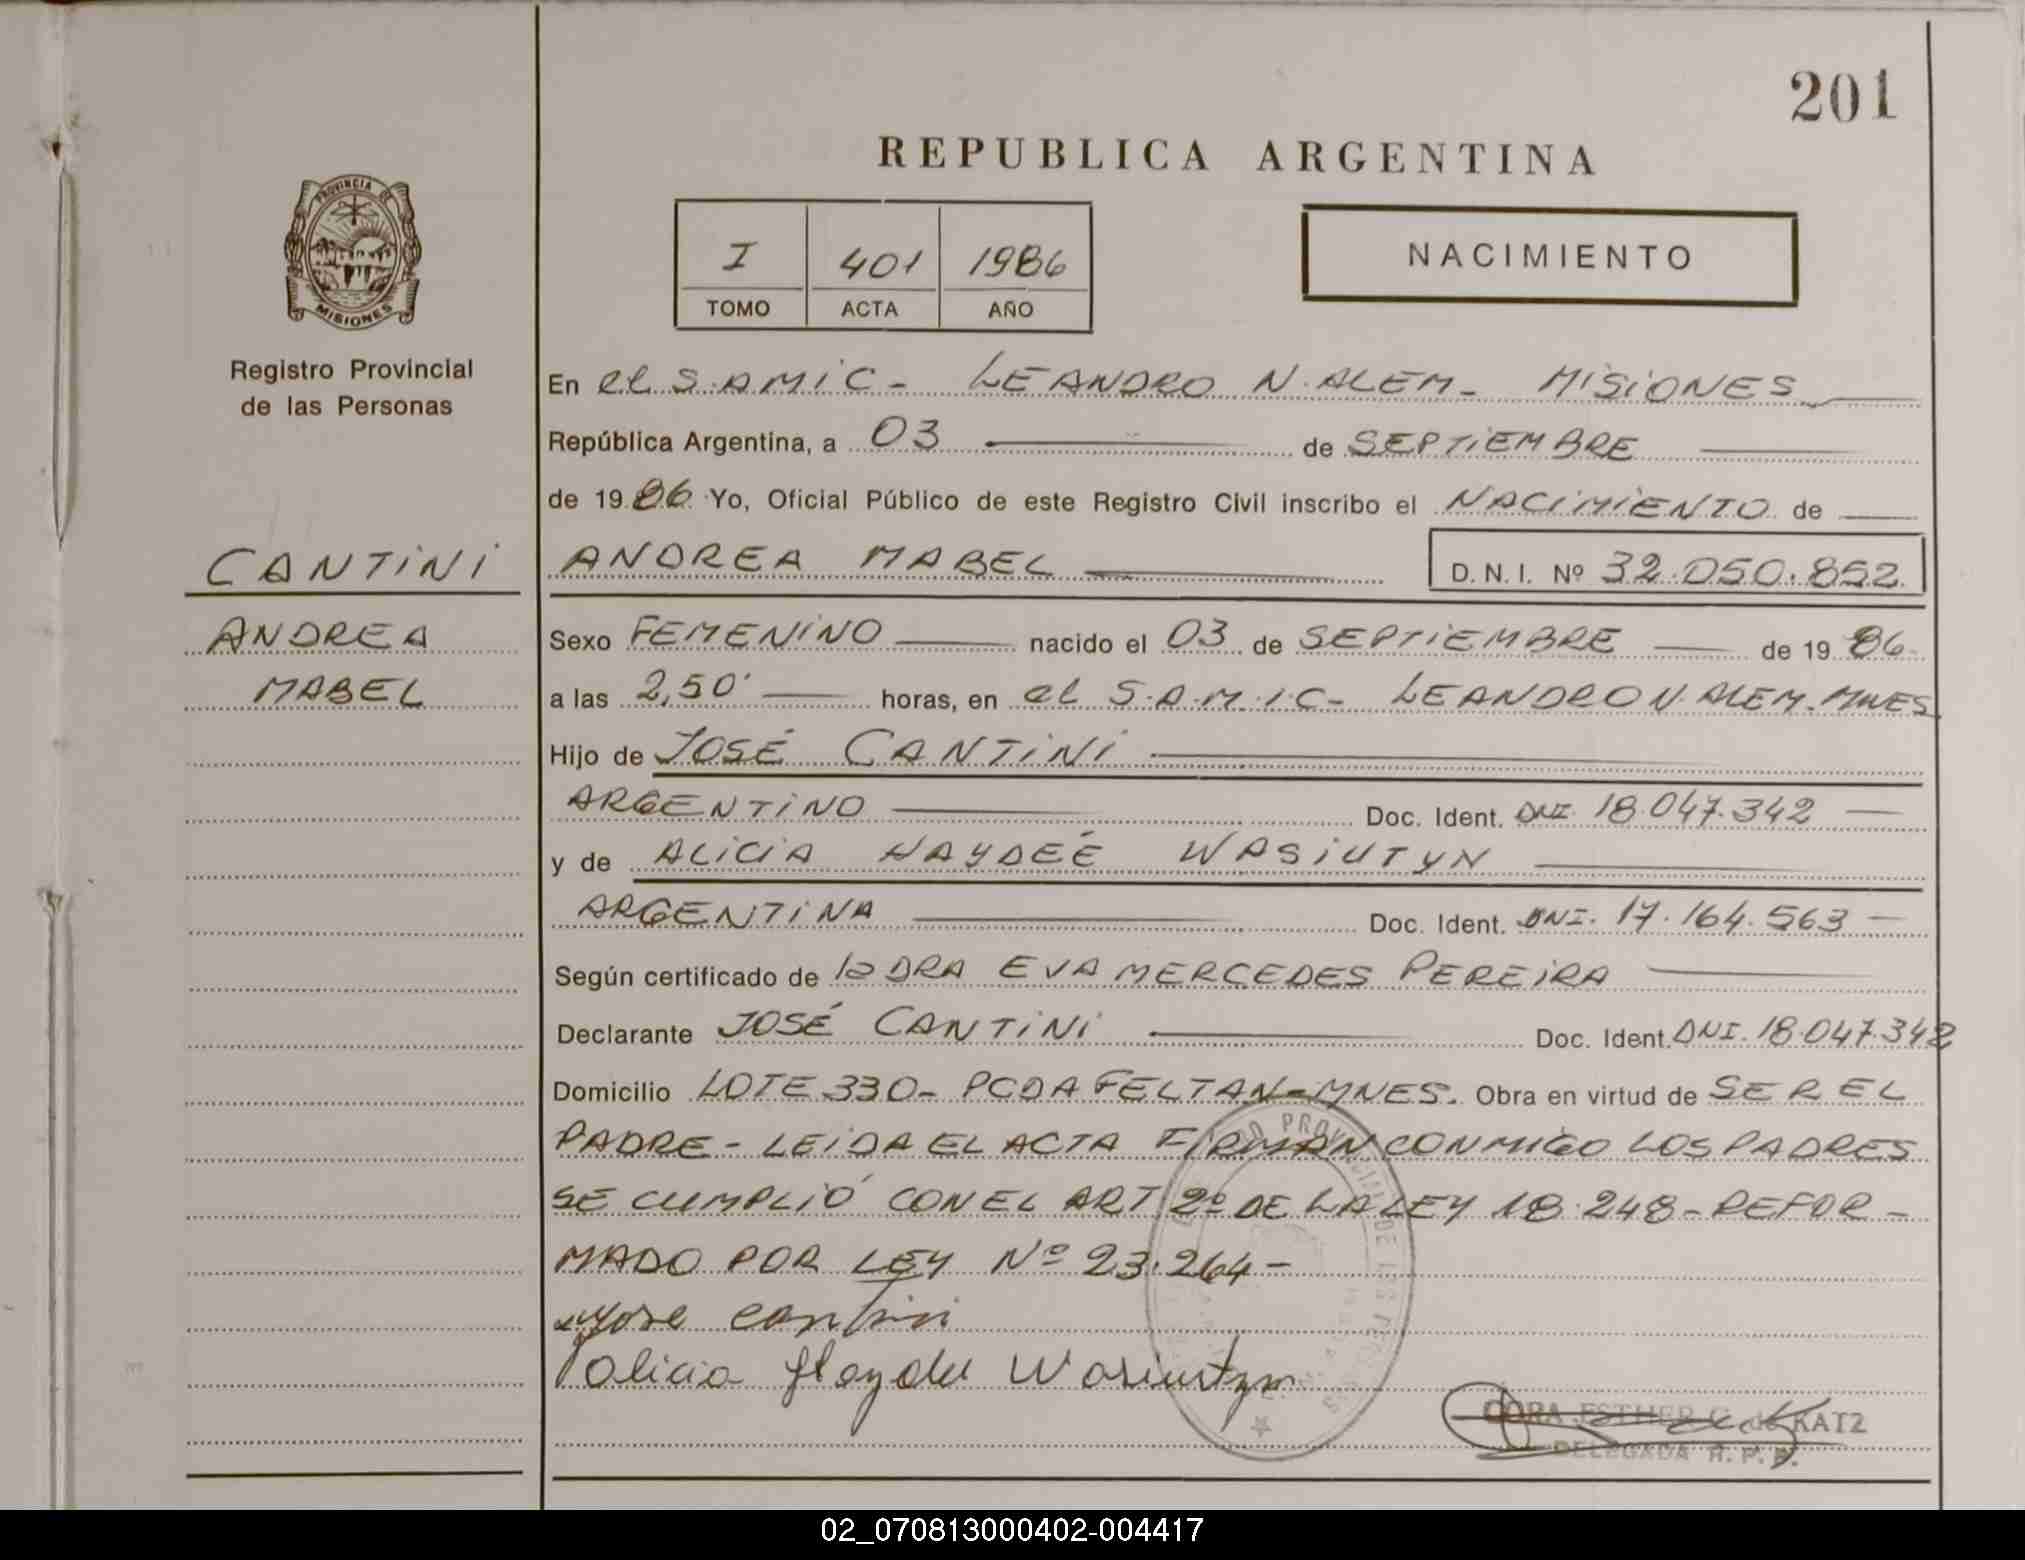 201
REPUBLICA ARGENTINA
PROVINCIA DE
MISIONES
Registro Provincial
de las Personas
I 401 1986
TOMO ACTA AÑO
NACIMIENTO
En el S.A.M.I.C - LEANDRO N. ALEM - MISIONES
República Argentina, a 03 de SEPTIEMBRE
de 1986 Yo, Oficial Público de este Registro Civil inscribo el NACIMIENTO de
CANTINI
ANDREA MABEL D.N.I. Nº 32.050.852
ANDREA
MABEL
Sexo FEMENINO nacido el 03 de SEPTIEMBRE de 1986
a las 2,50' horas, en el S.A.M.I.C - LEANDRO N. ALEM. MNES
Hijo de JOSÉ CANTINI
ARGENTINO Doc. Ident. DNI. 18.047.342
y de ALICIA HAYDEÉ WASIUTYN
ARGENTINA Doc. Ident. DNI. 17.164.563
Según certificado de la DRA EVA MERCEDES PEREIRA
Declarante JOSÉ CANTINI Doc. Ident. DNI. 18.047.342
Domicilio LOTE 330 - PCDA FELTAN - MNES. Obra en virtud de SER EL
PADRE - LEIDA EL ACTA FIRMAN CONMIGO LOS PADRES
SE CUMPLIÓ CON EL ART 2º DE LA LEY 18.248 - REFOR -
MADO POR LEY Nº 23.264 -
Jose Cantini
Alicia Haydee Wasiutyn
CORA ESTHER G. de KATZ
DELEGADA R. P. P.
02_070813000402-004417